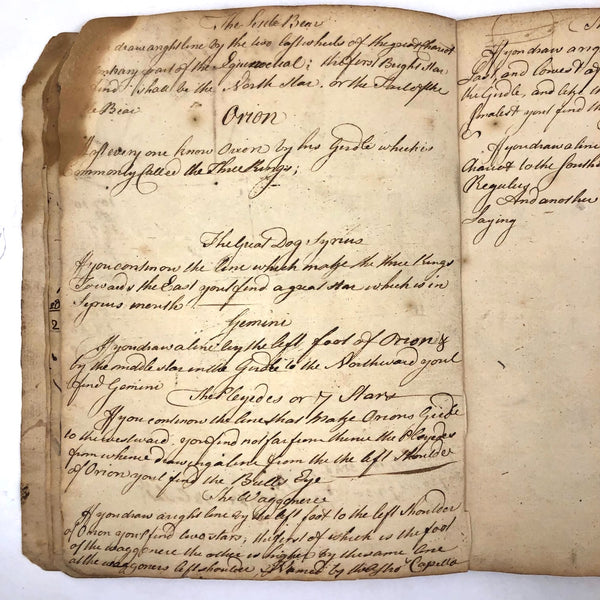 The Little Bear
draw a right line by the two last wheels of the great Chariot
contrary part of the Equinoctial; the first Bright Star
find shall be the North Star, or the Taile of the
Bear
Orion
every one know Orion by his Girdle which is
commonly called the Three Kings;
The Great Dog Syrius
If you continow the Line which make the three Kings
Towards the East you'l find a great star which is in
Syrius mouth
Gemini
If you draw a line by the left foot of Orion &
by the middle star in the Girdle to the Northward you'l
find Gemini
The Pleyedes or 7 Stars
If you continow the line that Make Orions Girdle
to the westward you find not far from thence the Pleyedes
from whence drawing a line from the the left Shoulder
of Orion you'l find the Bulls Eye
The Waggonere
If you draw a right line by the left foot to the left Shoulder
of Orion you'l find two stars; the first of which is the foot
of the waggonere the other is higher by the same line
at the waggoners left shoulder Named by the Capella
2
The
If you draw a rig
Last, and lowest of
the Girdle, and
smalest you'l find the
If you draw a line
Chariot to the South
Regulus
And another
Saying